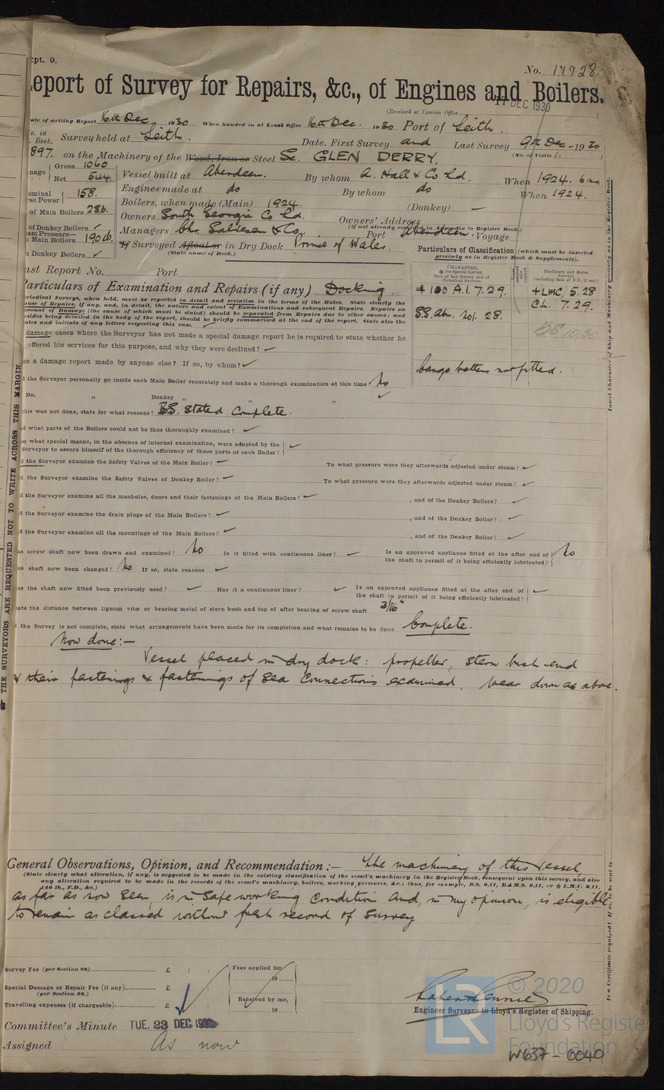 Rpt. 9.
No. 17928.
Report of Survey for Repairs, &c., of Engines and Boilers.
(Received at London Office
17 DEC 1930
ate of writing Report 16th Dec. 1930 When handed in at Local Office 16th Dec. 1930 Port of Leith.
Survey held at Leith. Date, First Survey and Last Survey 9th Dec 1930
Book.
(No. of Visits 1.
897. on the Machinery of the Wood, Iron or Steel Sc. GLEN DERRY.
Gross 1060
Net 544.
Vessel built at Aberdeen. By whom A. Hall & Co Ld. When 1924. 6
Engines made at do By whom do When 1924.
ominal 158.
se Power
Boilers, when made (Main) 1924 (Donkey) —
of Main Boilers 2SB.
Owners South Georgia Co Ld. Owners' Address
(if not already recorded in Appendix to Register Book.)
of Donkey Boilers ✓
Managers Chr. Salvesen & Co. Port Aberdeen. Voyage
am Pressure—
Main Boilers 190 lb.
If Surveyed Afloat or in Dry Dock Prince of Wales.
(State name of Dock.)
Donkey Boilers ✓
ast Report No. Port
Particulars of Classification (which must be inserted
precisely as in Register Book & Supplements).
Particulars of Examination and Repairs (if any) Docking.
+ 100 A.1. 7.29. + LMC. 5.28
CL. 7.29.
SS. Abn. No1. 28.
BS 10,30
cargo battens not fitted.
damage cases where the Surveyor has not made a special damage report he is required to state whether he
offered his services for this purpose, and why they were declined? ✓
as a damage report made by anyone else? If so, by whom? ✓
d the Surveyor personally go inside each Main Boiler separately and make a thorough examination at this time? No
Do. " Donkey " " " ✓
this was not done, state for what reasons? BS. stated complete.
d what parts of the Boilers could not be thus thoroughly examined? ✓
o what special means, in the absence of internal examination, were adopted by the
surveyor to assure himself of the thorough efficiency of those parts of each Boiler? ✓
d the Surveyor examine the Safety Valves of the Main Boiler? ✓ To what pressure were they afterwards adjusted under steam? ✓
d the Surveyor examine the Safety Valves of Donkey Boiler? ✓ To what pressure were they afterwards adjusted under steam? ✓
d the Surveyor examine all the manholes, doors and their fastenings of the Main Boilers? ✓ , and of the Donkey Boilers? ✓
d the Surveyor examine the drain plugs of the Main Boilers? ✓ , and of the Donkey Boiler? ✓
d the Surveyor examine all the mountings of the Main Boilers? ✓ , and of the Donkey Boiler? ✓
as screw shaft now been drawn and examined? No Is it fitted with continuous liner? ✓ Is an approved appliance fitted at the after end of
the shaft to permit of it being efficiently lubricated? No
as shaft now been changed? No If so, state reasons ✓
as the shaft now fitted been previously used? ✓ Has it a continuous liner? ✓ Is an approved appliance fitted at the after end of
the shaft to permit of it being efficiently lubricated? ✓
tate the distance between lignum vitæ or bearing metal of stern bush and top of after bearing of screw shaft 3/16"
f the Survey is not complete, state what arrangements have been made for its completion and what remains to be done Complete.
Now done:—
Vessel placed in dry dock: propeller, stern bush end
& their fastenings & fastenings of sea connections examined. Wear down as above.
General Observations, Opinion, and Recommendation:— The machinery of this vessel,
(State clearly what alteration, if any, is suggested to be made in the existing classification of the vessel's machinery in the Register Book, consequent upon this survey, and also
any alteration required to be made in the records of the vessel's machinery, boilers, working pressures, &c.: thus, for example, B.S. 9,11, B&M.S. 9,11, or L.M.C. 9,11,
140 lb., F.D., &c.)
as far as now seen, is in safe working condition and, in my opinion, is eligible
to remain as classed without fresh record of survey
Survey Fee (per Section 29) £ : : Fees applied for,
19
Special Damage or Repair Fee (if any) £ : :
(per Section 29.)
Received by me,
Travelling expenses (if chargeable) £ : :
19
Engineer Surveyor to Lloyd's Register of Shipping.
Committee's Minute TUE. 23 DEC 1930
Assigned As now
© 2020
Lloyd's Register
Foundation
W637-0040
THE SURVEYORS ARE REQUESTED NOT TO WRITE ACROSS THIS MARGIN.